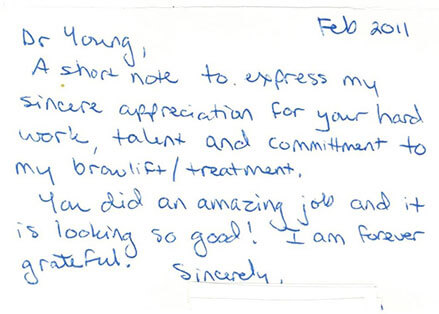 Feb 2011
Dr Young,
A short note to express my
sincere appreciation for your hard
work, talent and committment to
my browlift/treatment.
You did an amazing job and it
is looking so good! I am forever
grateful. Sincerely,